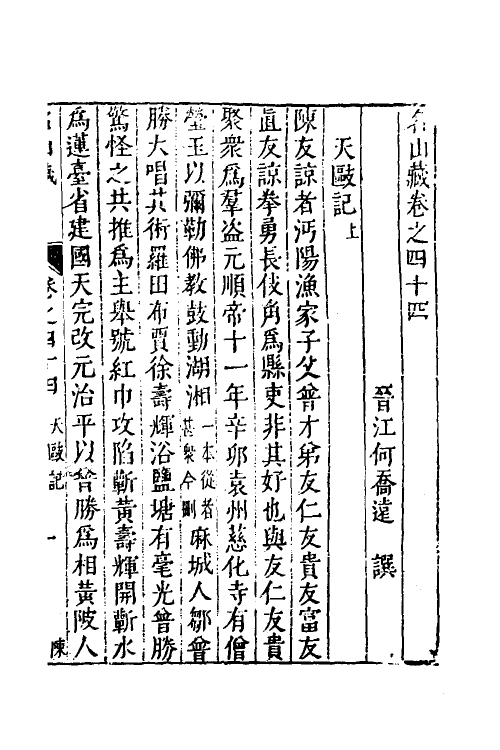 名山藏卷之四十四
晉江何喬遠 撰
天敺記上
陳友諒者沔陽漁家子父普才弟友仁友貴友富友
直友諒拳勇長伎角為縣吏非其好也與友仁友貴
聚衆為羣盜元順帝十一年辛卯袁州慈化寺有僧
瑩玉以彌勒佛教鼓動湖湘一本從者甚衆今刪麻城人鄒普
勝大唱其術羅田布賈徐壽輝浴鹽塘有毫光普勝
驚怪之共推為主舉號紅巾攻陷蘄黃壽輝開蘄水
為蓮臺省建國天完改元治平以普勝為相黃陂人
名山藏 卷之四十四 天敺記 一 陳